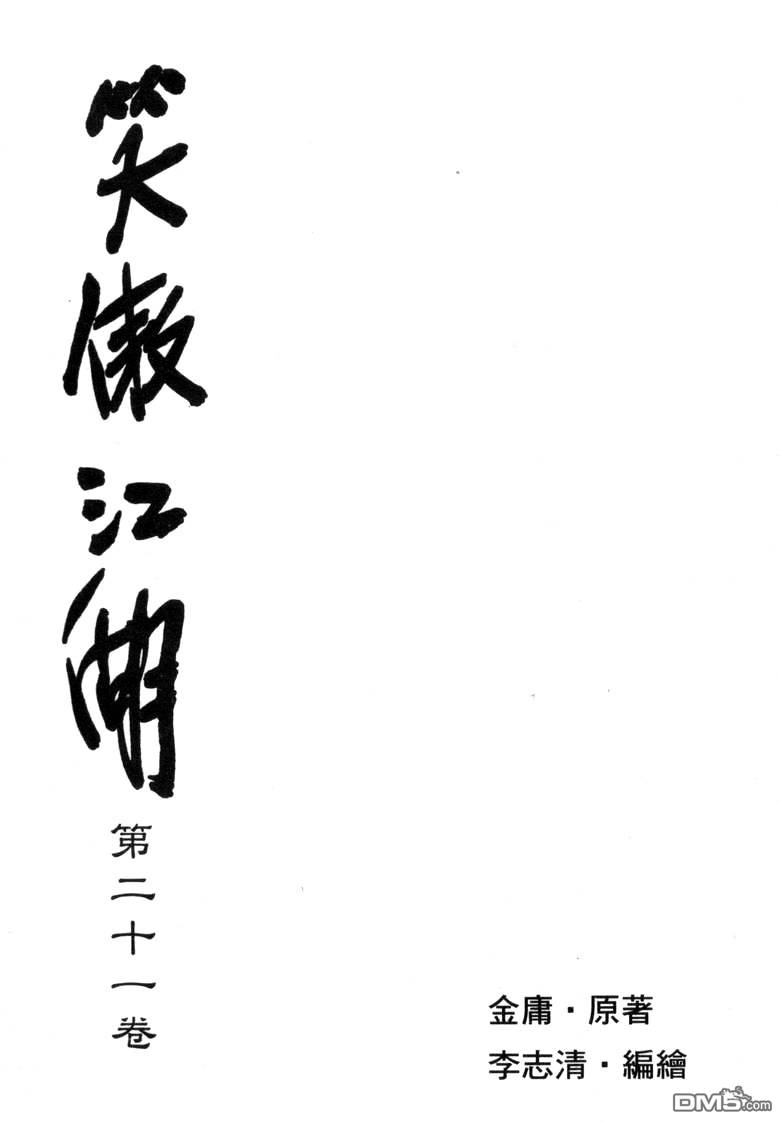 笑傲江湖
第二十一卷
金庸・原著
李志清・編繪
DM5.com